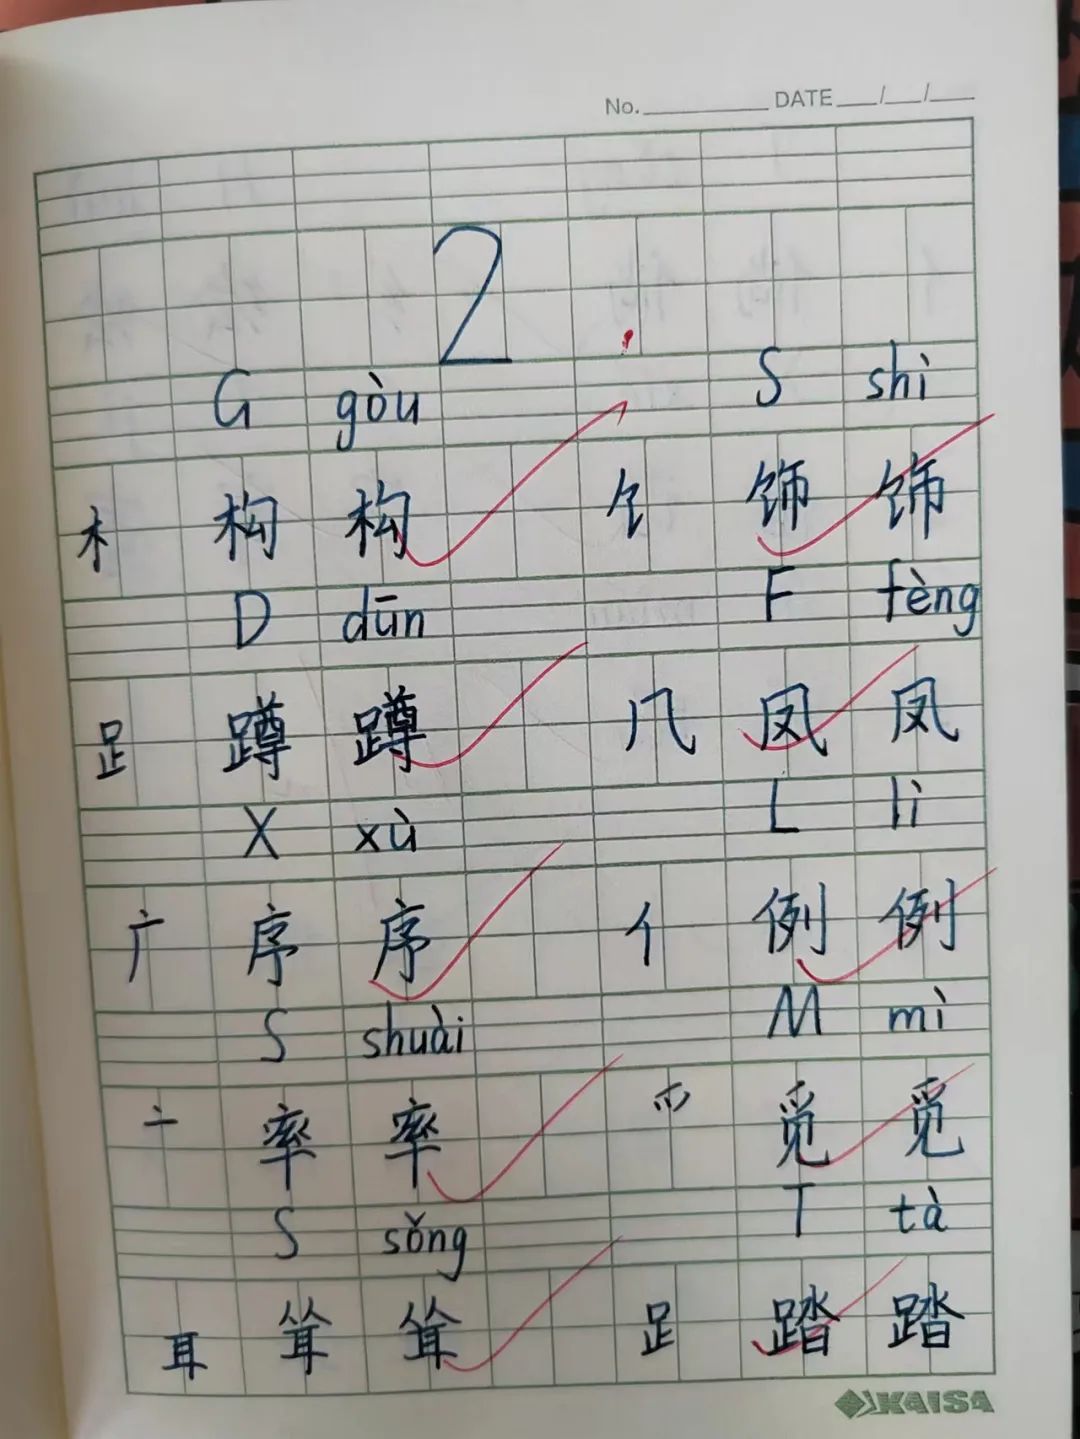 No. DATE / /
2
G gòu S shì
木 构 构 饣 饰 饰
D dūn F fèng
𧾷 蹲 蹲 几 凤 凤
X xù L lì
广 序 序 亻 例 例
S shuài M mì
亠 率 率 爫 觅 觅
S sǒng T tà
耳 耸 耸 𧾷 踏 踏
KAISA